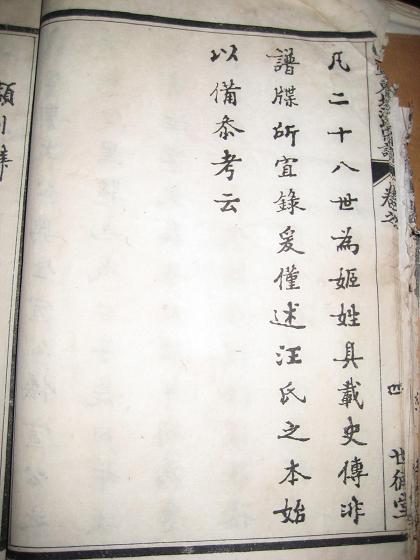 卷之
四
凡二十八世為姬姓具載史傳非
譜牒所宜錄爰僅述汪氏之本始
以備叅考云